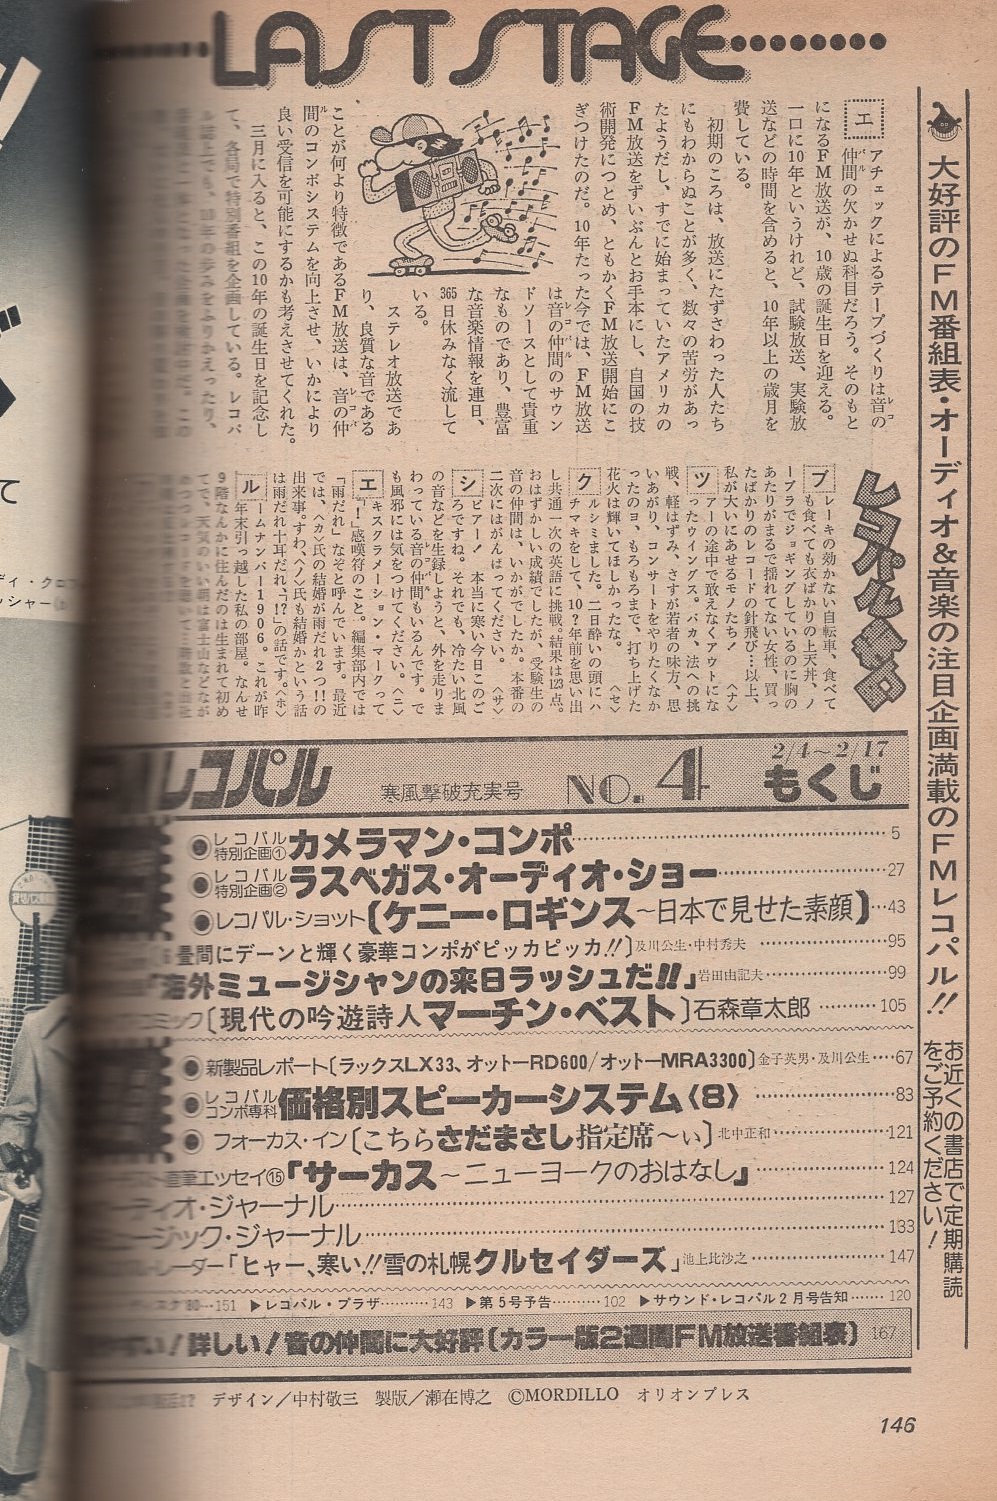 LAST STAGE
大好評のFM番組表・オーディオ&音楽の注目企画満載のFMレコパル!!
お近くの書店で定期購読
をご予約ください!
エアチェックによるテープづくりは音の
仲間の欠かせぬ科目だろう。そのもと
になるFM放送が、10歳の誕生日を迎える。
一口に10年というけれど、試験放送、実験放
送などの時間を含めると、10年以上の歳月を
費している。
初期のころは、放送にたずさわった人たち
にもわからぬことが多く、数々の苦労があっ
たようだし、すでに始まっていたアメリカの
FM放送をずいぶんとお手本にし、自国の技
術開発につとめ、ともかくFM放送開始にこ
ぎつけたのだ。10年たった今では、FM放送
は音の仲間のサウン
ドソースとして貴重
なものであり、豊富
な音楽情報を連日、
365日休みなく流して
いる。
ステレオ放送であ
り、良質な音である
ことが何より特徴であるFM放送は、音の仲
間のコンポシステムを向上させ、いかにより
良い受信を可能にするかも考えさせてくれた。
三月に入ると、この10年の誕生日を記念し
て、各局で特別番組を企画している。レコパ
ル誌上でも、10年の歩みをふりかえったり、
ブレーキの効かない自転車、食べて
も食べても衣ばかりの上天丼、ノ
ーブラでジョギングしているのに胸の
あたりがまるで揺れてない女性、買っ
たばかりのレコードの針飛び…以上、
私が大いにあせるモノたち! 〈ナ〉
ツアーの途中で敢えなくアウトにな
ったウイングス。バカ、法への挑
戦、軽はずみ、さすが若者の味方、思
いあがり、コンサートをやりたくなか
ったのヨ、もろもろまで、打ち上げた
花火は輝いてほしかったな。 〈セ〉
クルシミました。二日酔いの頭にハ
チマキをして、10?年前を思い出
し共通一次の英語に挑戦。結果は123点。
おはずかしい成績でしたが、受験生の
音の仲間は、いかがでしたか。本番の
二次にはがんばってください。 〈サ〉
シビアー! 本当に寒い今日このご
ろですね。それでも、冷たい北風
の音などを生録しようと、外を走りま
わっている音の仲間もいるんです。で
も風邪には気をつけてください。〈ニ〉
エキスクラメーション・マークって
「!」感嘆符のこと。編集部内では
「雨だれ」なぞと呼んでいます。最近
では、〈カ〉氏の結婚が雨だれ2つ!!の
出来事。すわ、〈ヘ〉氏も結婚かという話
は雨だれ十耳だれ、!?の話です。〈ホ〉
ルームナンバー1906。これが昨
年末引っ越した私の部屋。なんせ
9階なんかに住んだのは生まれて初め
てで、天気のいい朝は富士山などなが
レコパル
寒風撃破充実号
NO.4
2/4〜2/17
もくじ
レコパル特別企画① カメラマン・コンポ 5
レコパル特別企画② ラスベガス・オーディオ・ショー 27
レコパル・ショット〔ケニー・ロギンス〜日本で見せた素顔〕 43
6畳間にデーンと輝く豪華コンポがピッカピッカ!!〕及川公生・中村秀夫 95
「海外ミュージシャンの来日ラッシュだ!!」岩田由記夫 99
コミック〔現代の吟遊詩人マーチン・ベスト〕石森章太郎 105
新製品レポート〔ラックスLX33、オットーRD600/オットーMRA3300〕金子英男・及川公生 67
レコパルコンポ専科 価格別スピーカーシステム〈8〉 83
フォーカス・イン〔こちらさだまさし指定席〜ぃ〕北中正和 121
直筆エッセイ⑮「サーカス〜ニューヨークのおはなし」 124
ーディオ・ジャーナル 127
ミュージック・ジャーナル 133
リーダー「ヒャー、寒い!!雪の札幌クルセイダーズ」池上比沙之 147
'80 151 ▶レコパル・プラザ 143 ▶第5号予告 102 ▶サウンド・レコパル2月号告知 120
い!詳しい!音の仲間に大好評〔カラー版2週間FM放送番組表〕 167
デザイン/中村敬三 製版/瀬在博之 ©MORDILLO オリオンプレス
146